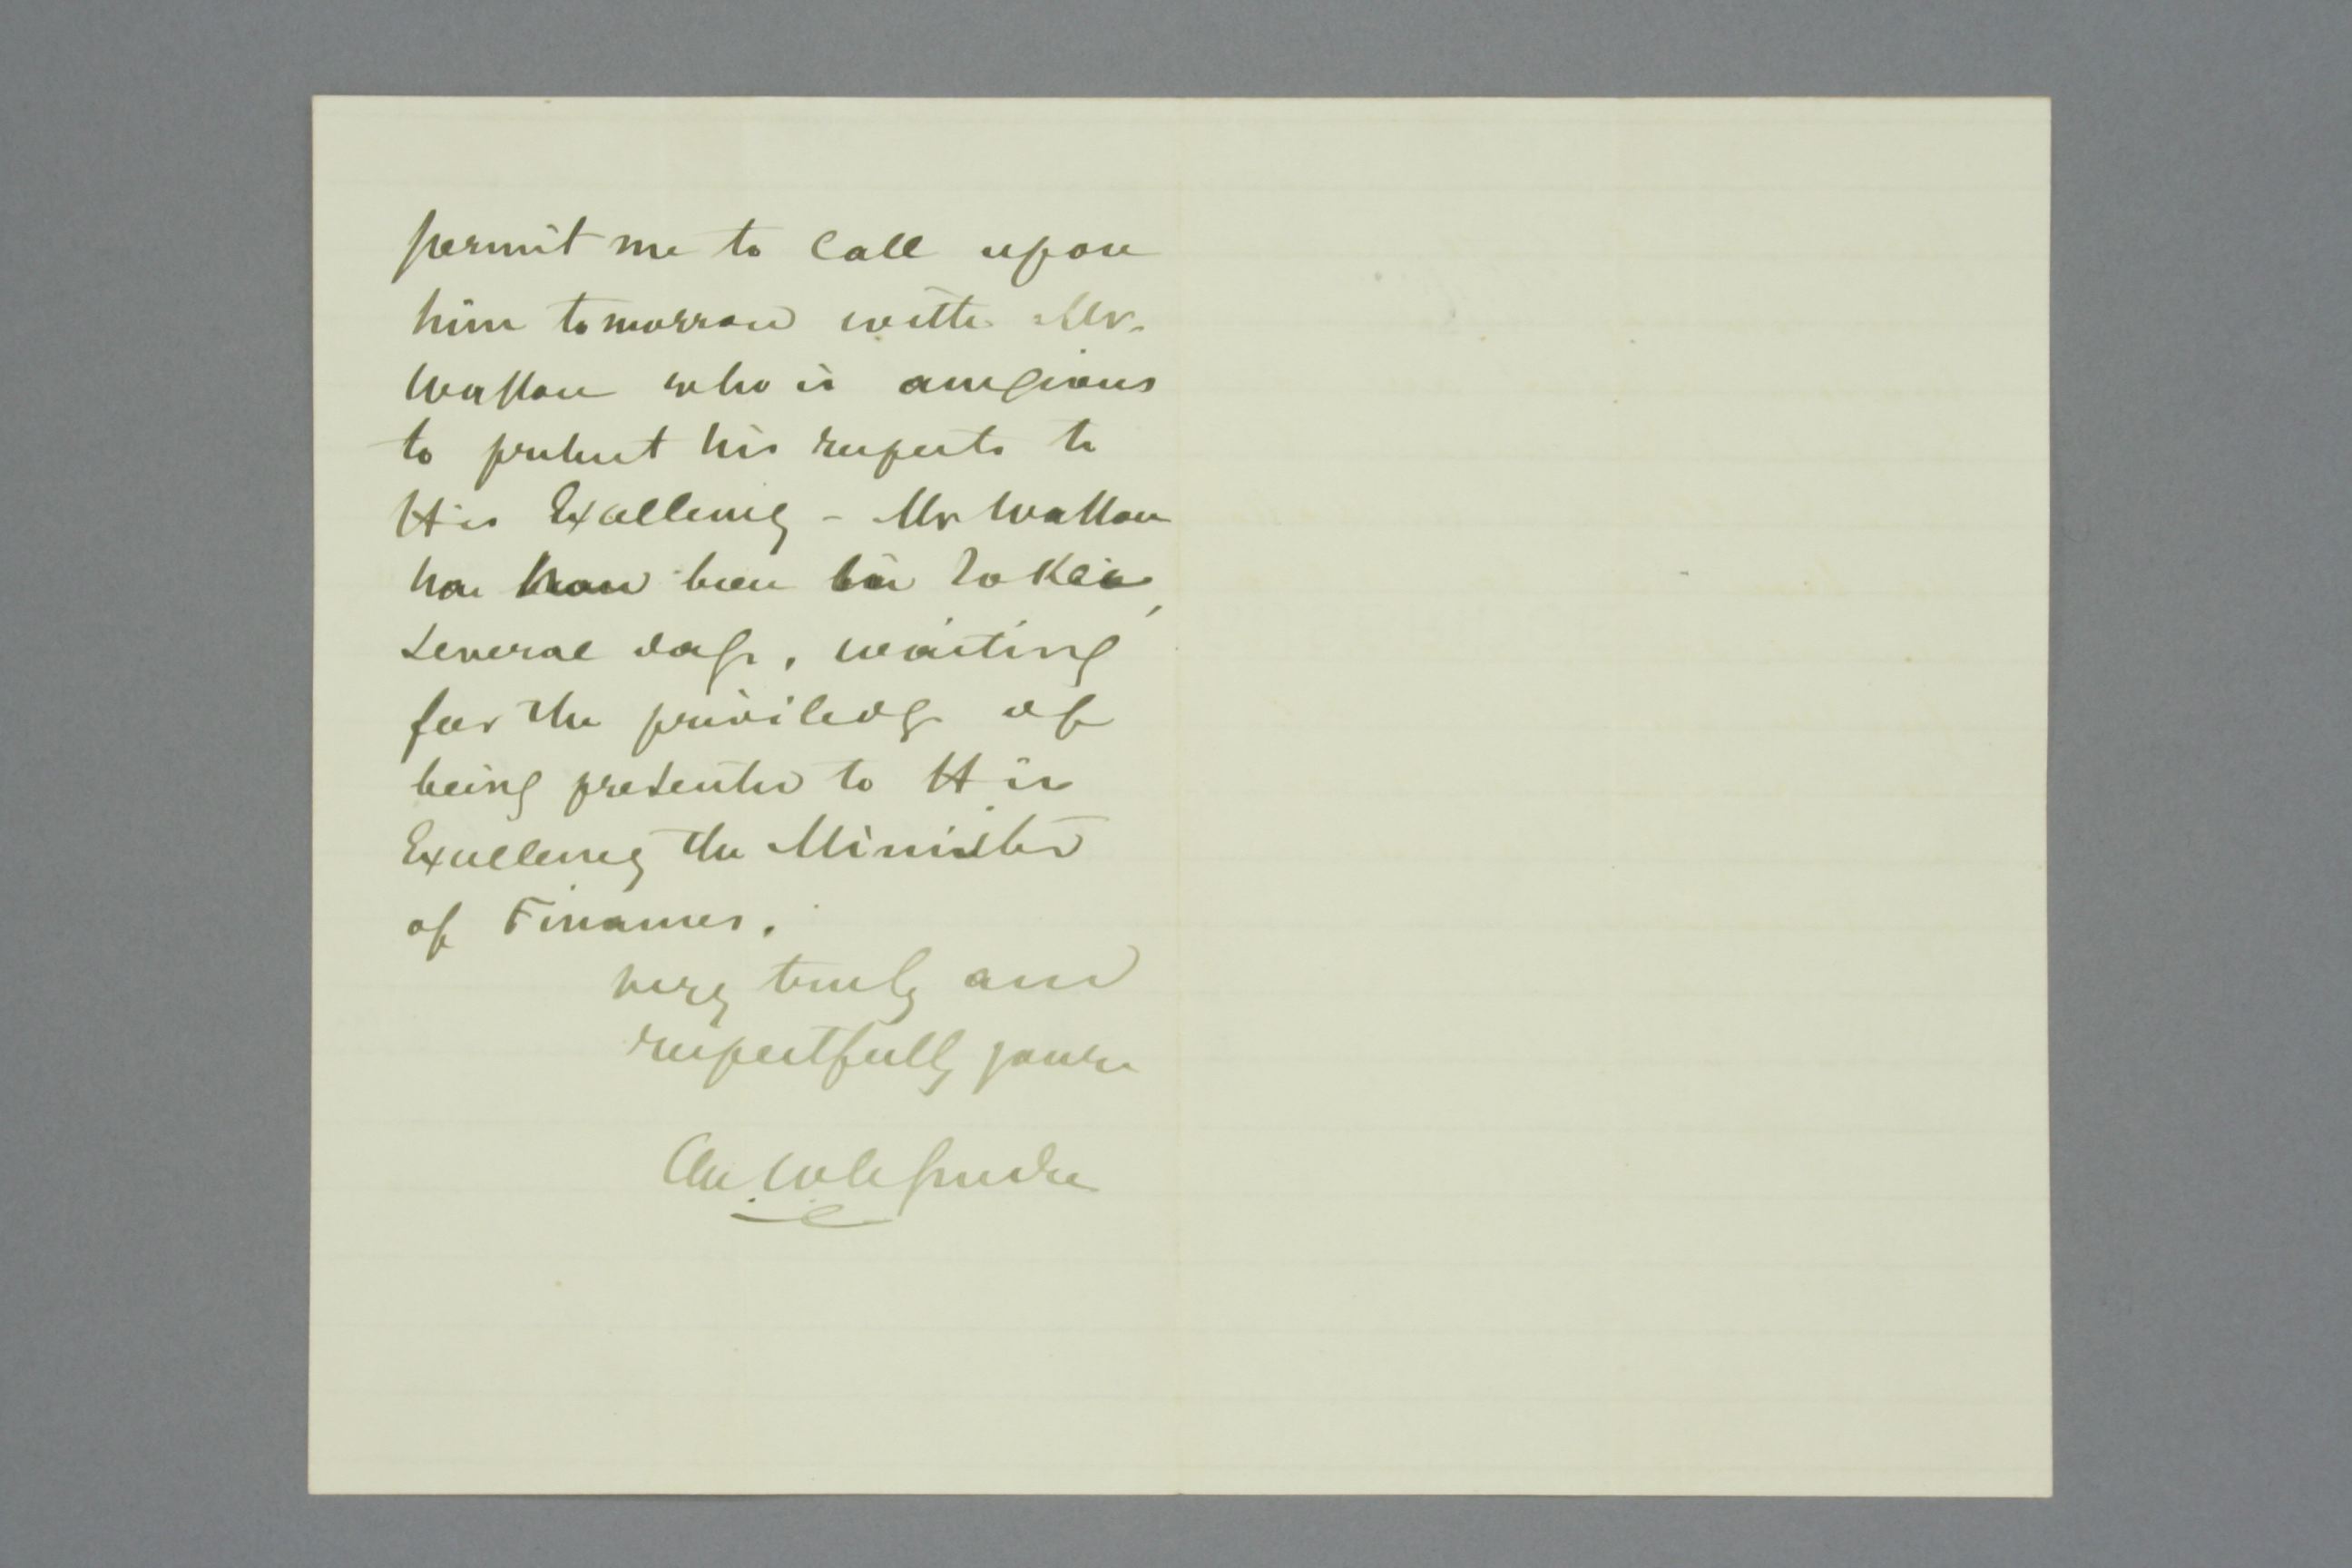 permit me to call upon
him tomorrow with Mr.
Watson who is anxious
to present his respects to
His Excellency - Mr Watson
has now been in Tokei,
several days, waiting
for the priviledge of
being presented to His
Excellency the Minister
of Finances.
very truly and
respectfully yours